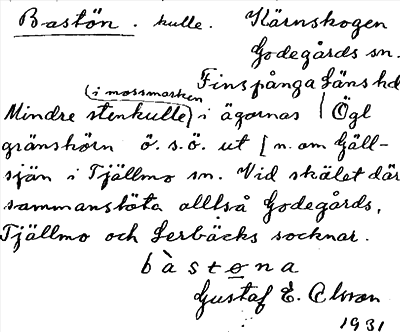 Bastön. kulle. Kärnskogen
Godegårds sn.
Finspånga läns hd
(i mossmarken
Mindre stenkulle) i ägornas | Ögl
gränshörn ö. s. ö. ut [n. om Gäll-
sjön i Tjällmo sn. Vid skälet där
sammanstöta alltså Godegårds,
Tjällmo och Lerbäcks socknar.
bàstǫna
Gustaf E. Alvran
1931